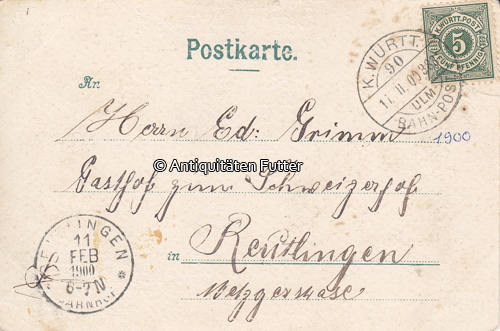 Postkarte.
K. WÜRTT. POST
5
FÜNF PFENNIG
K. WÜRTT.
90
11 II 00
ULM
BAHN-POST
An
Herrn Ed: Grimm
1900
© Antiquitäten Futter
Gasthof zum Schweizerhof
in Reutlingen
Metzgerstrasse
REUTLINGEN
11
FEB
1900
6-7 N
BAHNHOF